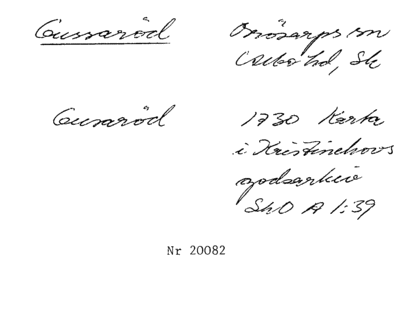 Gussaröd
Onösarps sn
Albo hd, Sk
Gusaröd
1730 Karta
i Kristinehovs
godsarkiv
SkO A 1:39
Nr 20082